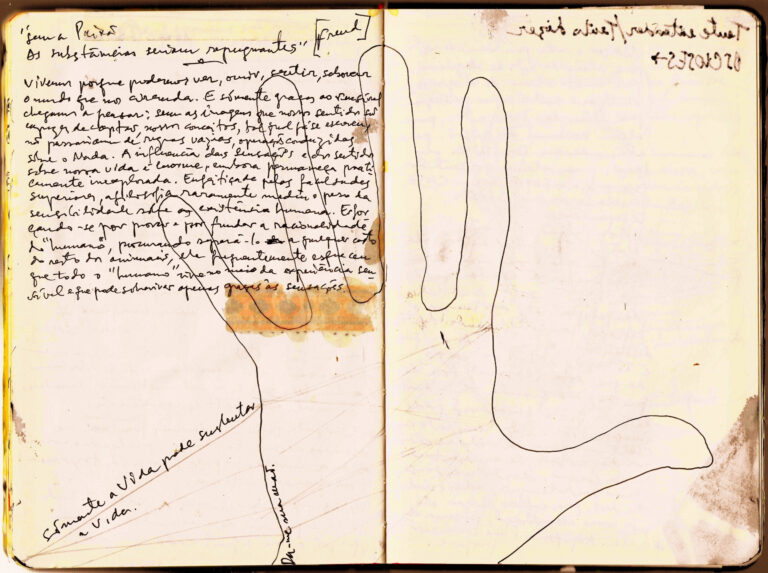 "Sem a Paixão
As substâncias seriam repugnantes" [Freud]
Vivemos porque podemos ver, ouvir, sentir, saborear
o mundo que nos circunda. E somente graças ao sensível
chegamos a pensar: sem as imagens que nosso sentidos são
capazes de captar, nossos conceitos, tal qual já se escreveu,
não passariam de regras vazias, operações conduzidas
sobre o Nada. A influência das sensações e dos sentidos
sobre nossa vida é enorme, embora permaneça prati
camente inexplorada. Enfeitiçada pelas faculdades
superiores, a filosofia raramente mediu o peso da
sensibilidade sobre as existência humana. Esfor
çando-se por provar e por fundar a racionalidade
do "humano", procurando separá-lo a qualquer custo
do resto dos animais, ela frequentemente esqueceu
que todo o "humano" vive no meio da experiência sen
sível e que pode sobreviver apenas graças às sensações.
somente a vida pode sustentar
a vida.
Da-me sua mão.
Tente entender/
OS CROSES